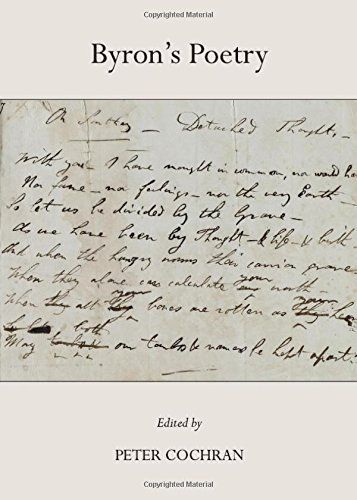 Copyrighted Material
Byron's Poetry
On Southey — Detached Thought. —
With you I have nought in common, nor would have
Nor fame — nor feelings — nor the very Earth —
So let us be divided by the Grave —
As we have been by Thought — & life — & birth
And when the hungry worms their carrion crave
When they alone can calculate your worth —
When your bones are rotten as
both
May our tombs & names be kept apart.
Edited by
PETER COCHRAN
Copyrighted Material